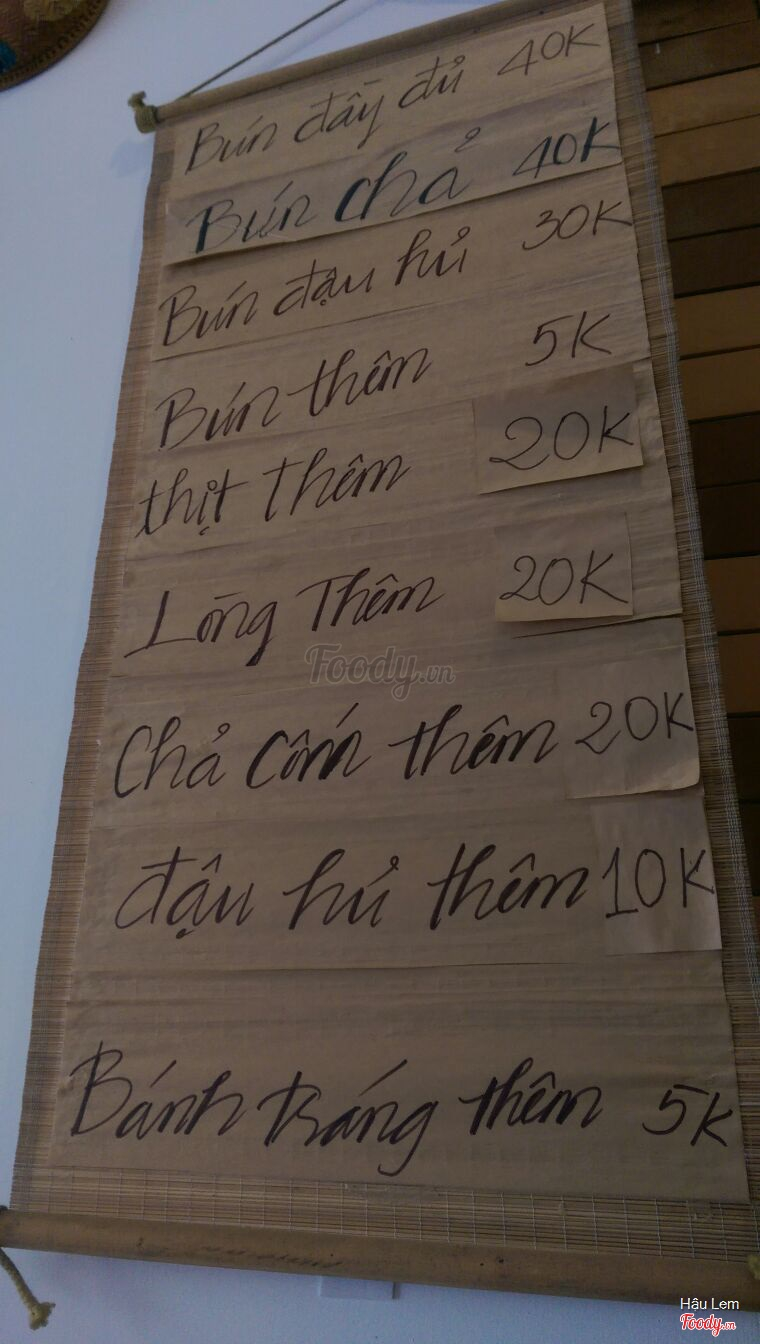 Bún đầy đủ 40K
Bún chả 40K
Bún đậu hủ 30K
Bún thêm 5K
thịt thêm 20K
Lòng Thêm 20K
Foody.vn
Chả cốm thêm 20K
đậu hủ thêm 10K
Bánh tráng thêm 5K
Hậu Lem
Foody.vn